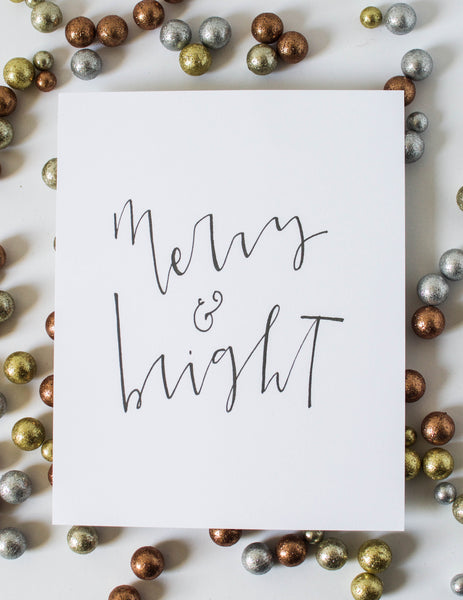 Merry
&
bright